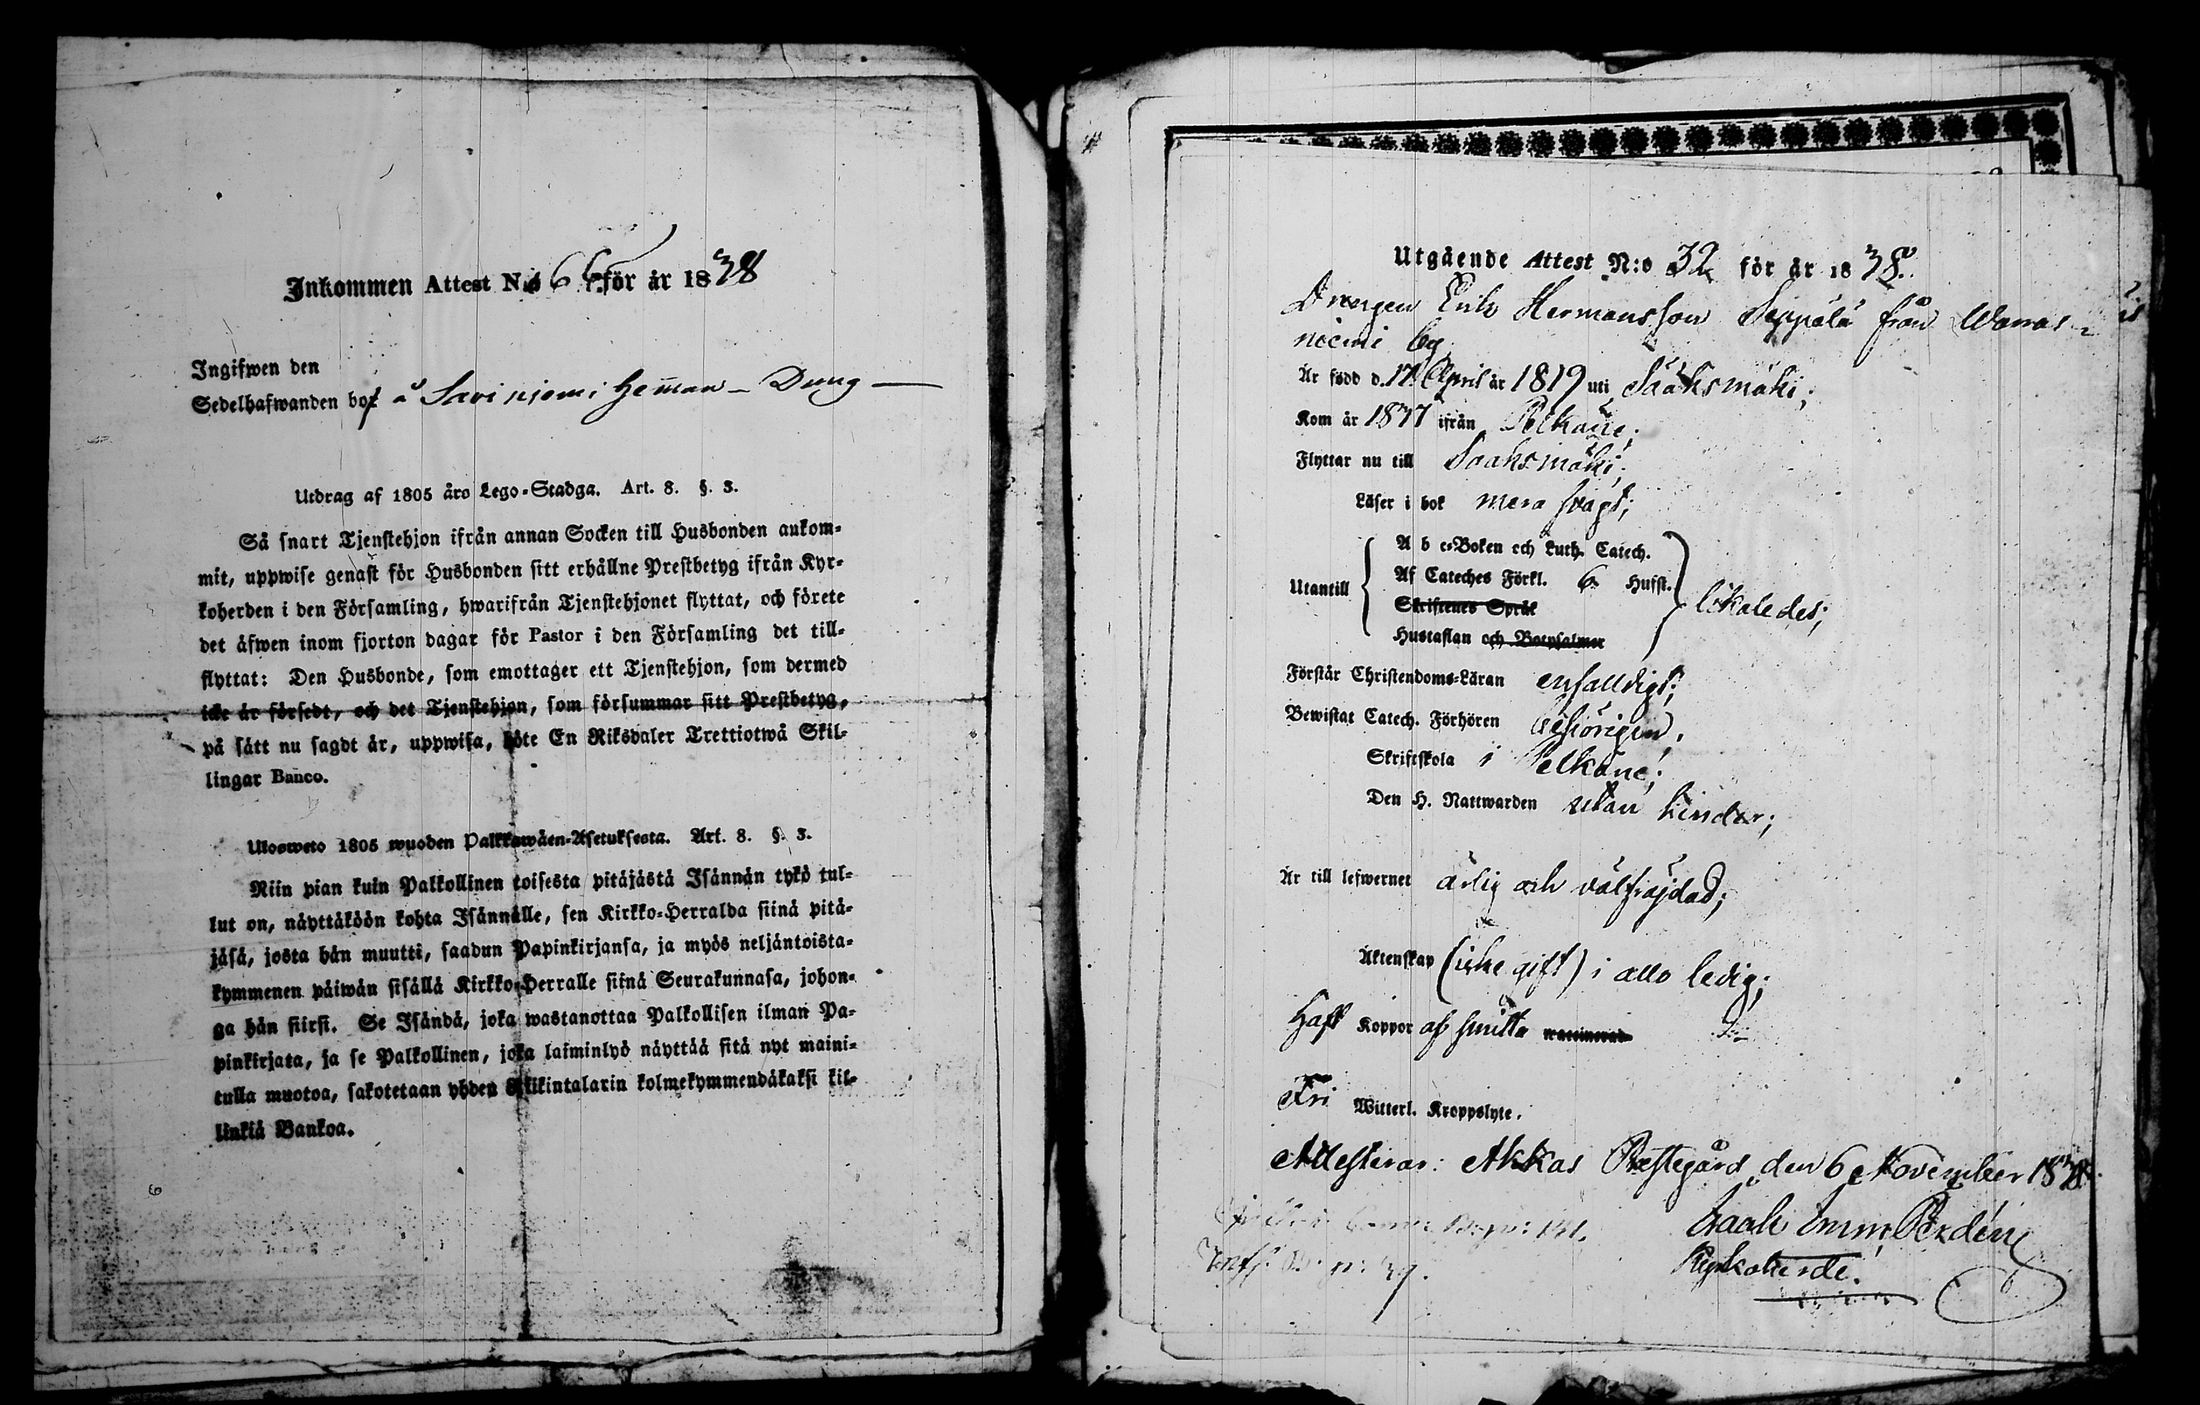 Inkommen Attest N:o 66 för år 1838
Ingifwen den
Sedelhafwanden bor å Savinjemi Heman - Dung
Utdrag af 1805 åro Lego-Stadga. Art. 8. §. 3.
Så snart Tjenstehjon ifrån annan Socken till Husbonden ankom-
mit, uppwise genast för Husbonden sitt erhållne Prestbetyg ifrån Kyr-
koherden i den Församling, hwarifrån Tjenstehjonet flyttat, och förete
det äfwen inom fjorton dagar för Pastor i den Församling det till-
flyttat: Den Husbonde, som emottager ett Tjenstehjon, som dermed
icke är försedt, och det Tjenstehjon, som försummar sitt Prestbetyg,
på sätt nu sagdt är, uppwisa, böte En Riksdaler Trettiotwå Skil-
lingar Banco.
Ulosweto 1805 wuoden Palkkawäen-Asetuksesta. Art. 8. §. 3.
Niin pian kuin Palkollinen toisesta pitäjästä Isännän tykö tul-
lut on, näyttäköön kohta Isännälle, sen Kirkko-Herralda siinä pitä-
jäsä, josta hän muutti, saadun Papinkirjansa, ja myös neljäntoista-
kymmenen päiwän sisällä Kirkko-Herralle siinä Seurakunnasa, johon-
ga hän siirsi. Se Isändä, joka wastanottaa Palkollisen ilman Pa-
pinkirjata, ja se Palkollinen, joka laiminlyö näyttää sitä nyt maini-
tulla muotoa, sakotetaan yhden Rikintalarin kolmekymmendäkaksi kil-
linkiä Bankoa.
Utgående Attest N:o 32 för år 1838.
Drengen Erik Hermansson Seppälä från Wanas-
niemi by
Är född d. 17 April år 1819 uti Sääksmäki;
Kom år 1837 ifrån Pelkäne;
Flyttar nu till Sääksmäki;
Läser i bok mera svagt;
A b c-Boken och Luth. Catech.
Af Cateches Förkl. 6 Hufst.
Utantill likaledes;
Skriftenes Språk
Hustaflan och Botpsalmer
Förstår Christendoms-Läran enfalldigt;
Bewistat Catech. Förhören behörigen;
Skriftskola i Pelkäne;
Den H. Nattwarden utan hinder;
Är till lefwernet ärlig och välfräjdad;
Äktenskap (icke gift) i allo ledig;
Haft Koppor af smitta vaccinerad
Fri Witterl. Kroppslyte.
Attesterar: Akkas Prestegård den 6 November 1838.
Isaak Imm. Perdén
Kyrkoherde.